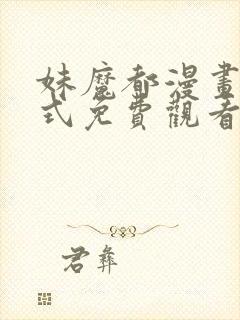 妹魔都漫畫
式免費觀看
君彝